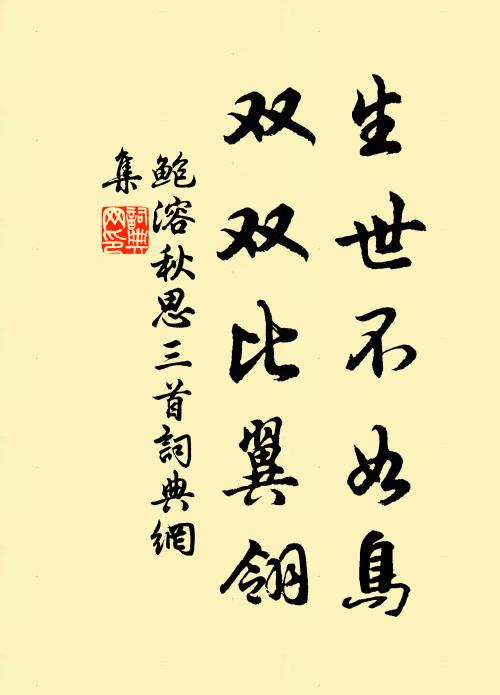 生世不如鳥
双双比翼翎
鲍溶秋思三首詞典網
集
詞典
网印